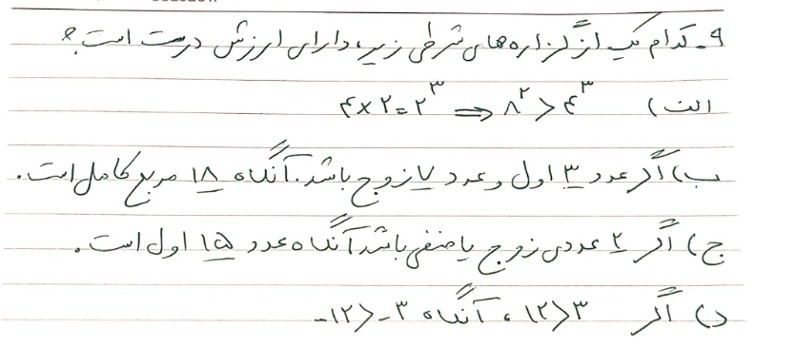 ۹- کدام یک از گزاره‌های شرطی زیر، دارای ارزش درست است؟
الف) ۴×۲=۲^۳ ⇒ ۸^۲ > ۴^۳
ب) اگر عدد ۳ اول و عدد ۷ زوج باشد. آنگاه ۱۸ مربع کامل است.
ج) اگر ۲ عددی زوج یا منفی باشد آنگاه عدد ۱۵ اول است.
د) اگر ۳<۱۲ ، آنگاه ۳- > ۱۲-